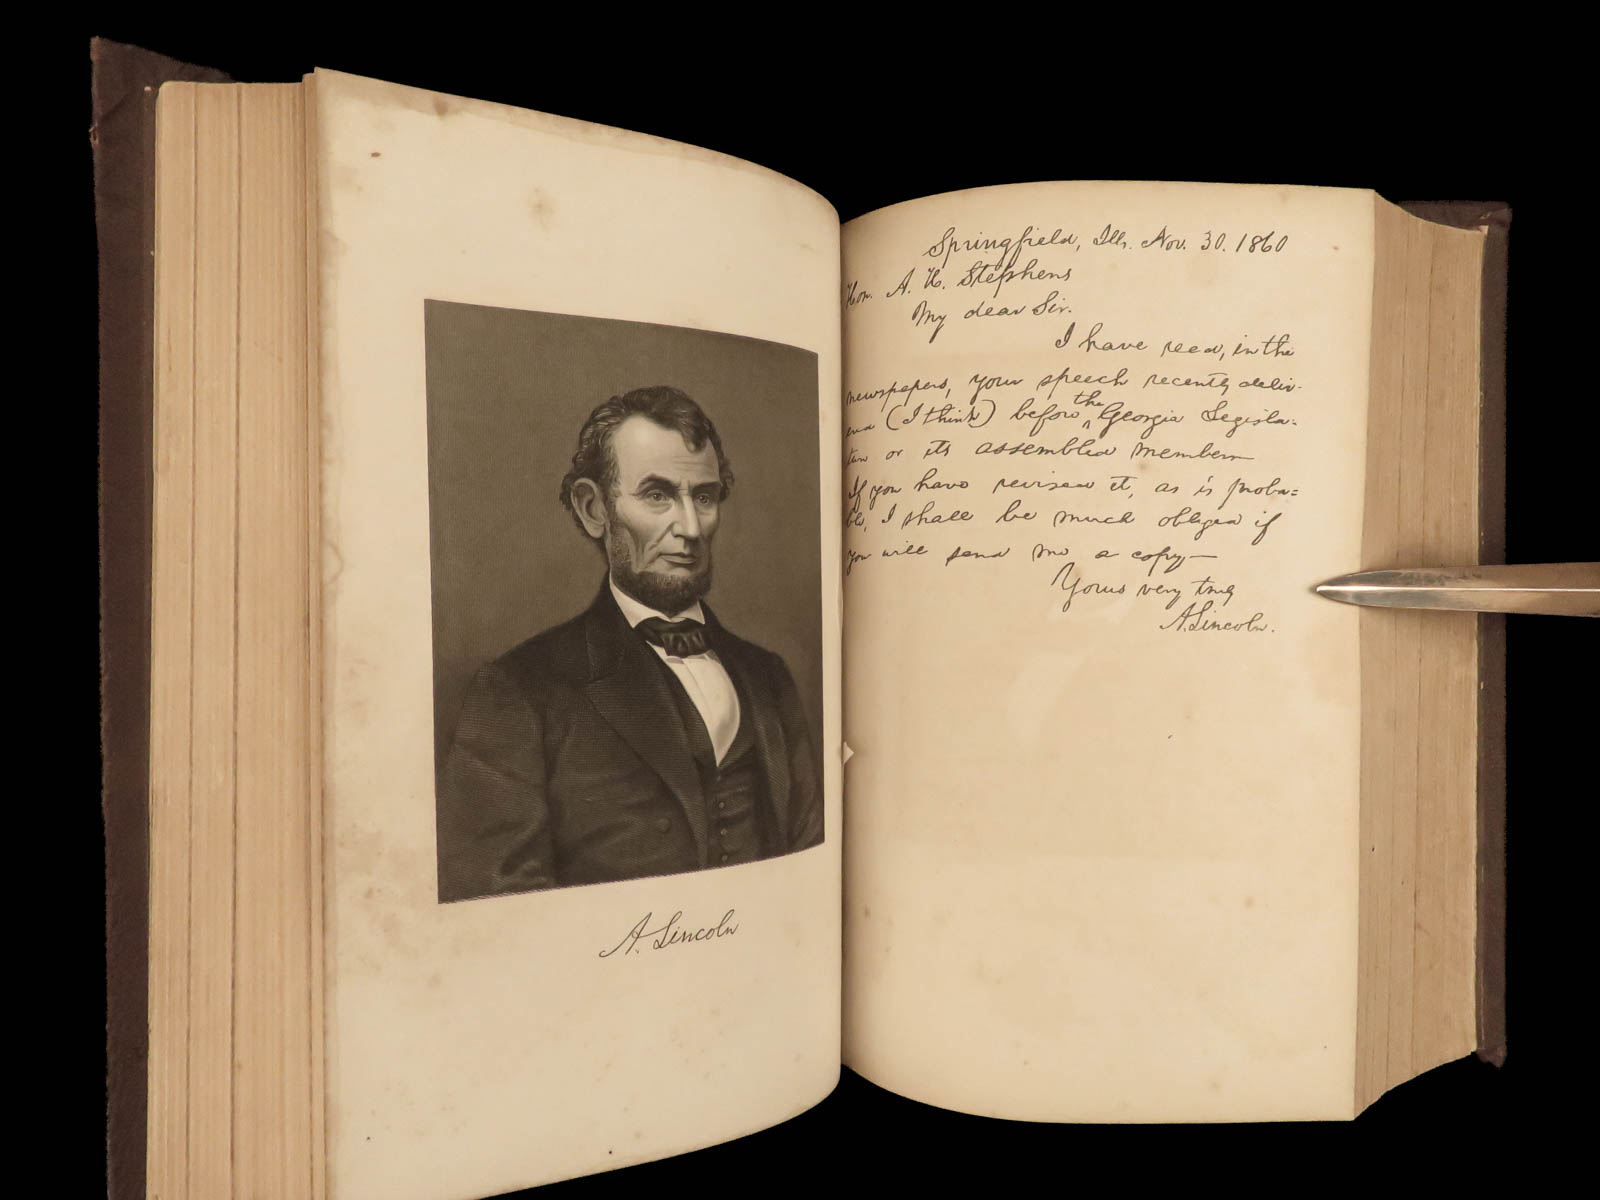 A. Lincoln
Springfield, Ills. Nov. 30. 1860
Hon. A. H. Stephens
My dear Sir.
I have read, in the
newspapers, your speech recently deliv-
ered (I think) before the Georgia Legisla-
ture or its assembled members
If you have revised it, as is proba=
ble, I shall be much obliged if
you will send me a copy—
Yours very truly
A. Lincoln.